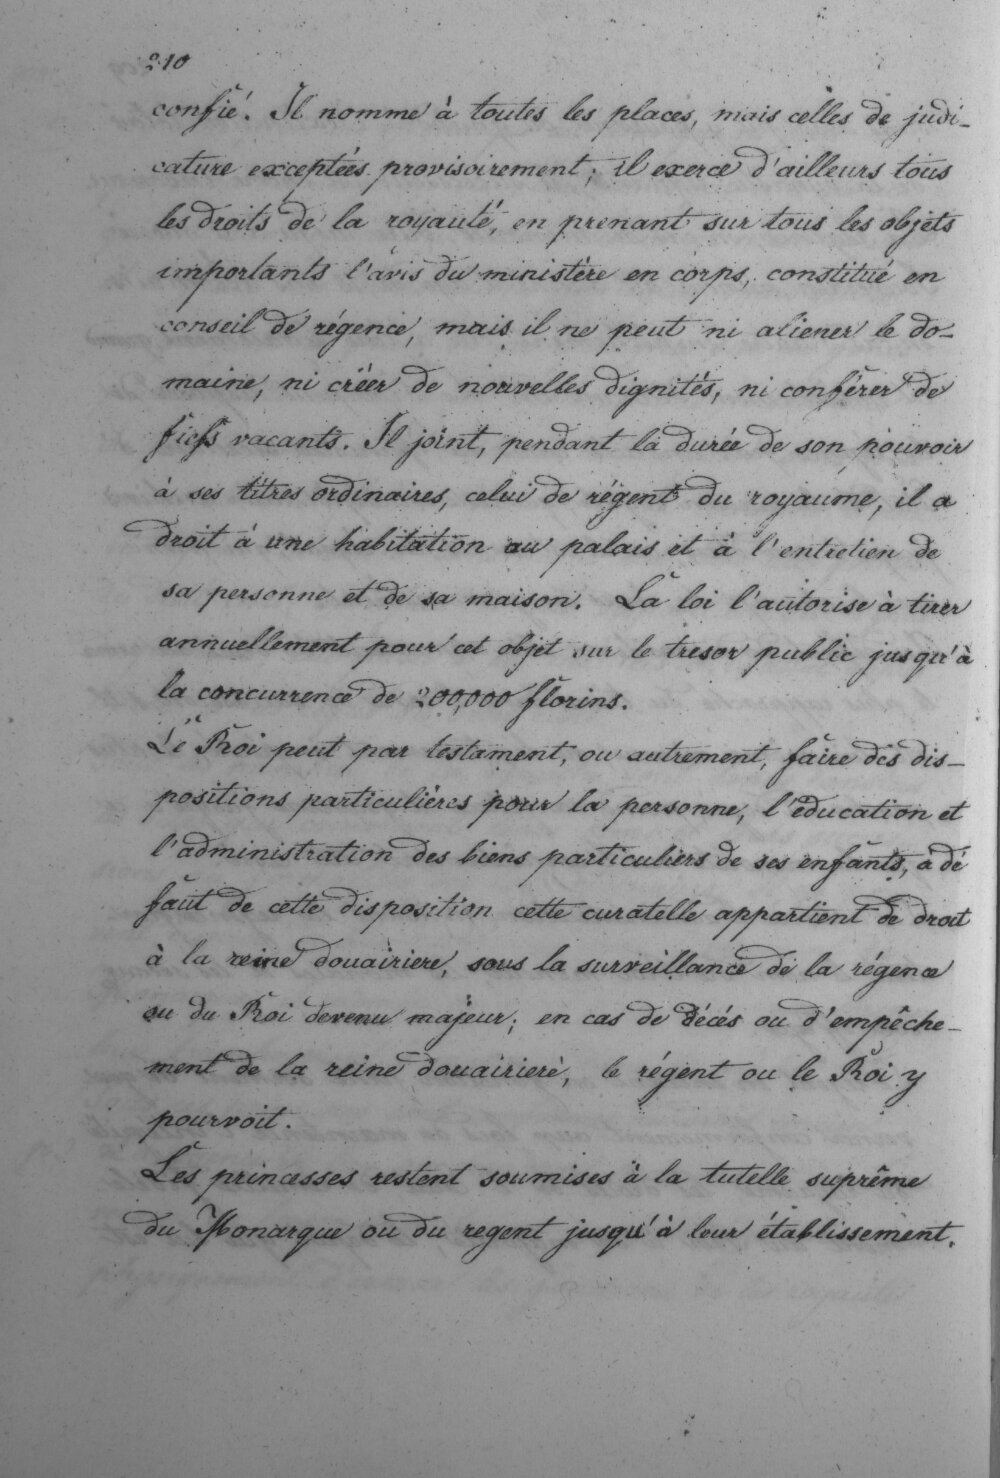 210
confié. Il nomme à toutes les places, mais celles de judi-
cature exceptées provisoirement; il exerce d'ailleurs tous
les droits de la royauté, en prenant sur tous les objets
importants l'avis du ministère en corps, constitué en
conseil de régence, mais il ne peut ni aliener le do-
maine, ni créer de nouvelles dignités, ni conférer de
fiefs vacants. Il joint, pendant la durée de son pouvoir
à ses titres ordinaires, celui de régent du royaume, il a
droit à une habitation au palais et à l'entretien de
sa personne et de sa maison. La loi l'autorise à tirer
annuellement pour cet objet sur le tresor public jusqu'à
la concurrence de 200,000 florins.
Le Roi peut par testament, ou autrement, faire des dis-
positions particulières pour la personne, l'éducation et
l'administration des biens particuliers de ses enfants, a dé
faut de cette disposition cette curatelle appartient de droit
à la reine douairiere, sous la surveillance de la régence
ou du Roi devenu majeur; en cas de décés ou d'empêche-
ment de la reine douairiere, le régent ou le Roi y
pourvoit.
Les princesses restent soumises à la tutelle suprême
du Monarque ou du regent jusqu'à leur établissement.